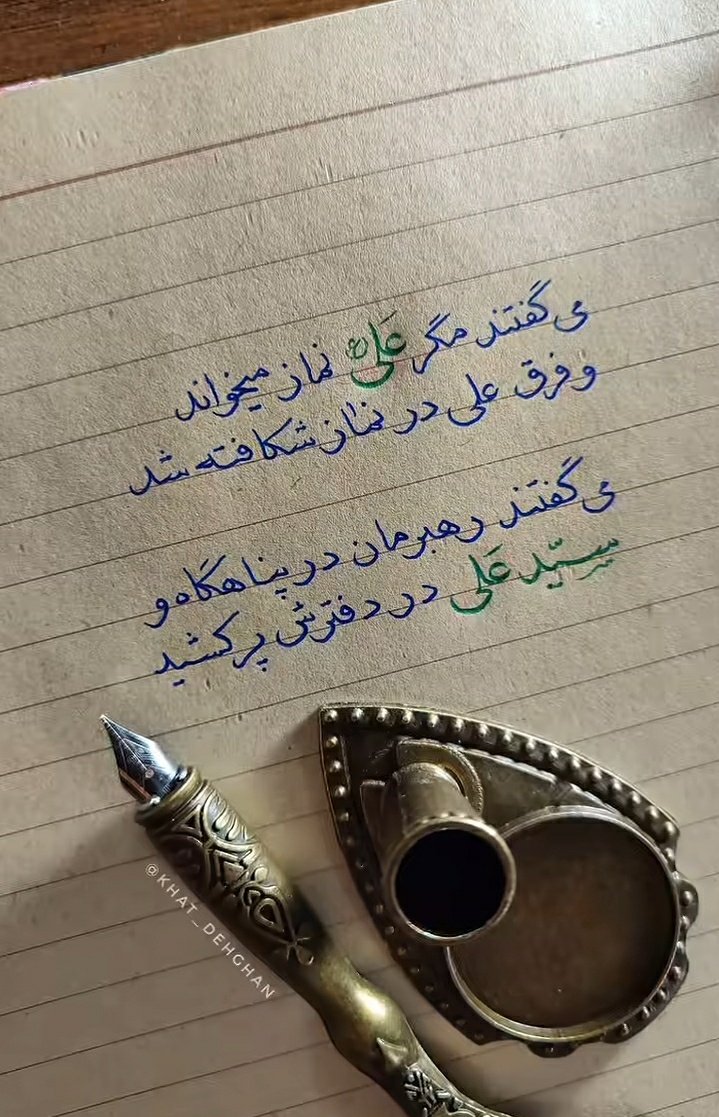 می‌گفتند مگر عَلی؏ نماز میخواند
و فرق علی در نماز شکافته شد
می‌گفتند رهبرمان در پناهگاه و
سیّد عَلی در دفترش پر کشید
@KHAT_DEHGHAN